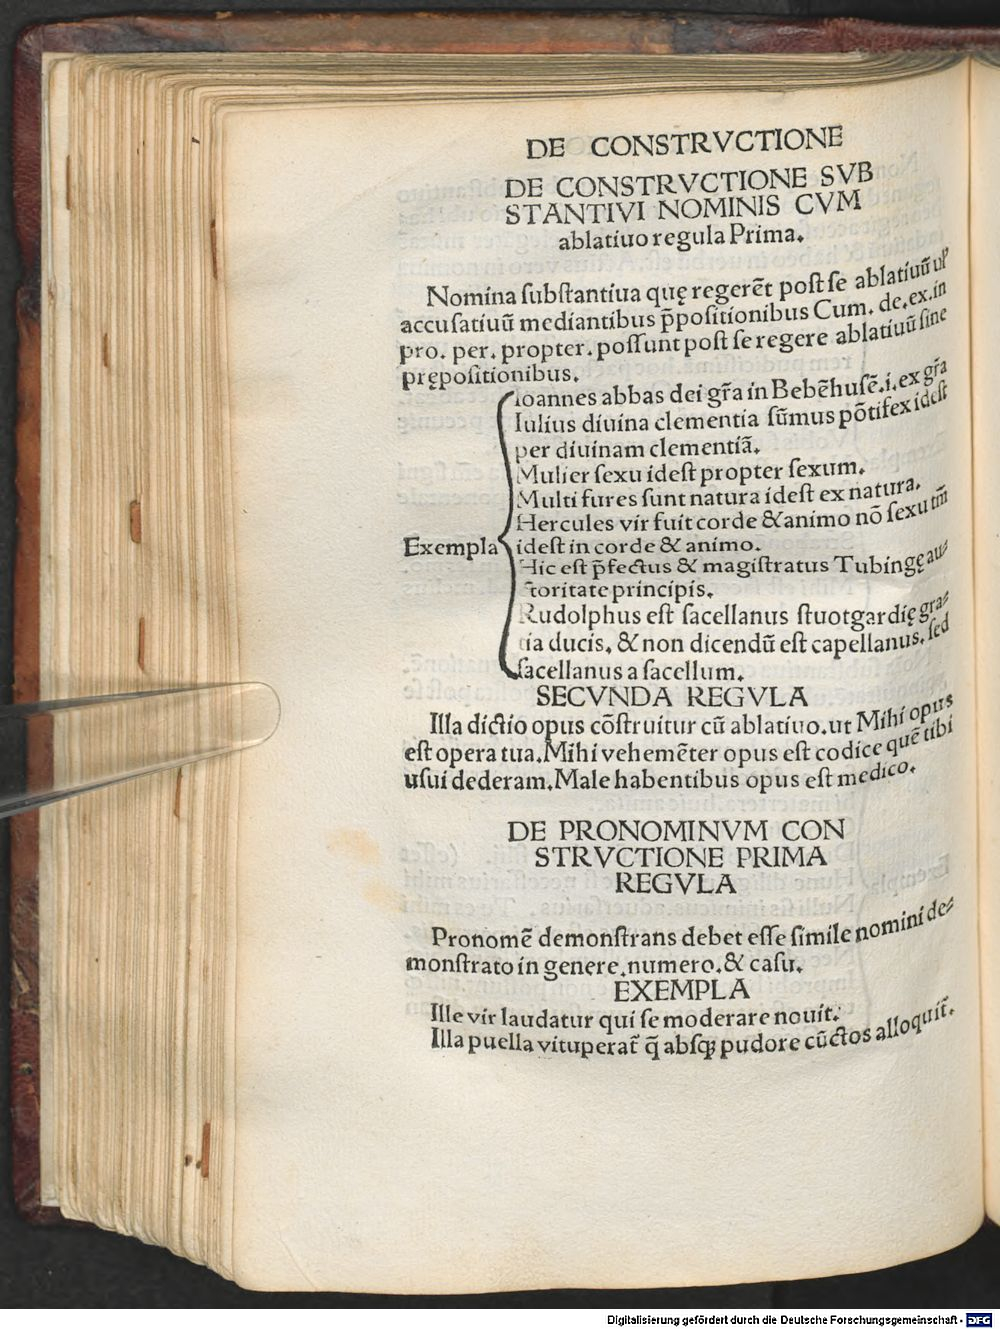 DE CONSTRVCTIONE
DE CONSTRVCTIONE SVB
STANTIVI NOMINIS CVM
ablatiuo regula Prima.
Nomina ſubſtantiua quę regerēt poſt ſe ablatiuū ul̓
accuſatiuū mediantibus p̄poſitionibus Cum. de. ex. in
pro. per. propter. poſſunt poſt ſe regere ablatiuū ſine
prępoſitionibus.
Ioannes abbas dei gr̄a in Bebēhuſē .i. ex gr̄a
Iulius diuina clementia ſūmus pōtifex ideſt
per diuinam clementiā.
Mulier ſexu ideſt propter ſexum.
Multi fures ſunt natura ideſt ex natura.
Hercules vir fuit corde & animo nō ſexu tm̄
Exempla ideſt in corde & animo.
Hic eſt p̄fectus & magiſtratus Tubingę au⸗
ctoritate principis.
Rudolphus eſt ſacellanus ſtuotgardię gra⸗
tia ducis. & non dicendū eſt capellanus. ſed
ſacellanus a ſacellum.
SECVNDA REGVLA
Illa dictio opus cōſtruitur cū ablatiuo. ut Mihi opus
eſt opera tua. Mihi vehemēter opus eſt codice quē tibi
uſui dederam. Male habentibus opus eſt medico.
DE PRONOMINVM CON
STRVCTIONE PRIMA
REGVLA
Pronomē demonſtrans debet eſſe ſimile nomini de⸗
monſtrato in genere. numero. & caſu.
EXEMPLA
Ille vir laudatur qui ſe moderare nouit.
Illa puella vituperat̄ q̄ abſqꝫ pudore cūctos alloquit̄.
Digitalisierung gefördert durch die Deutsche Forschungsgemeinschaft - DFG